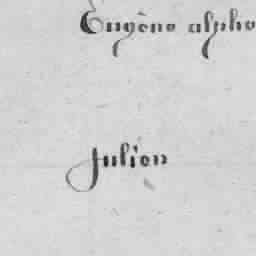 Eugène alpho
Julien